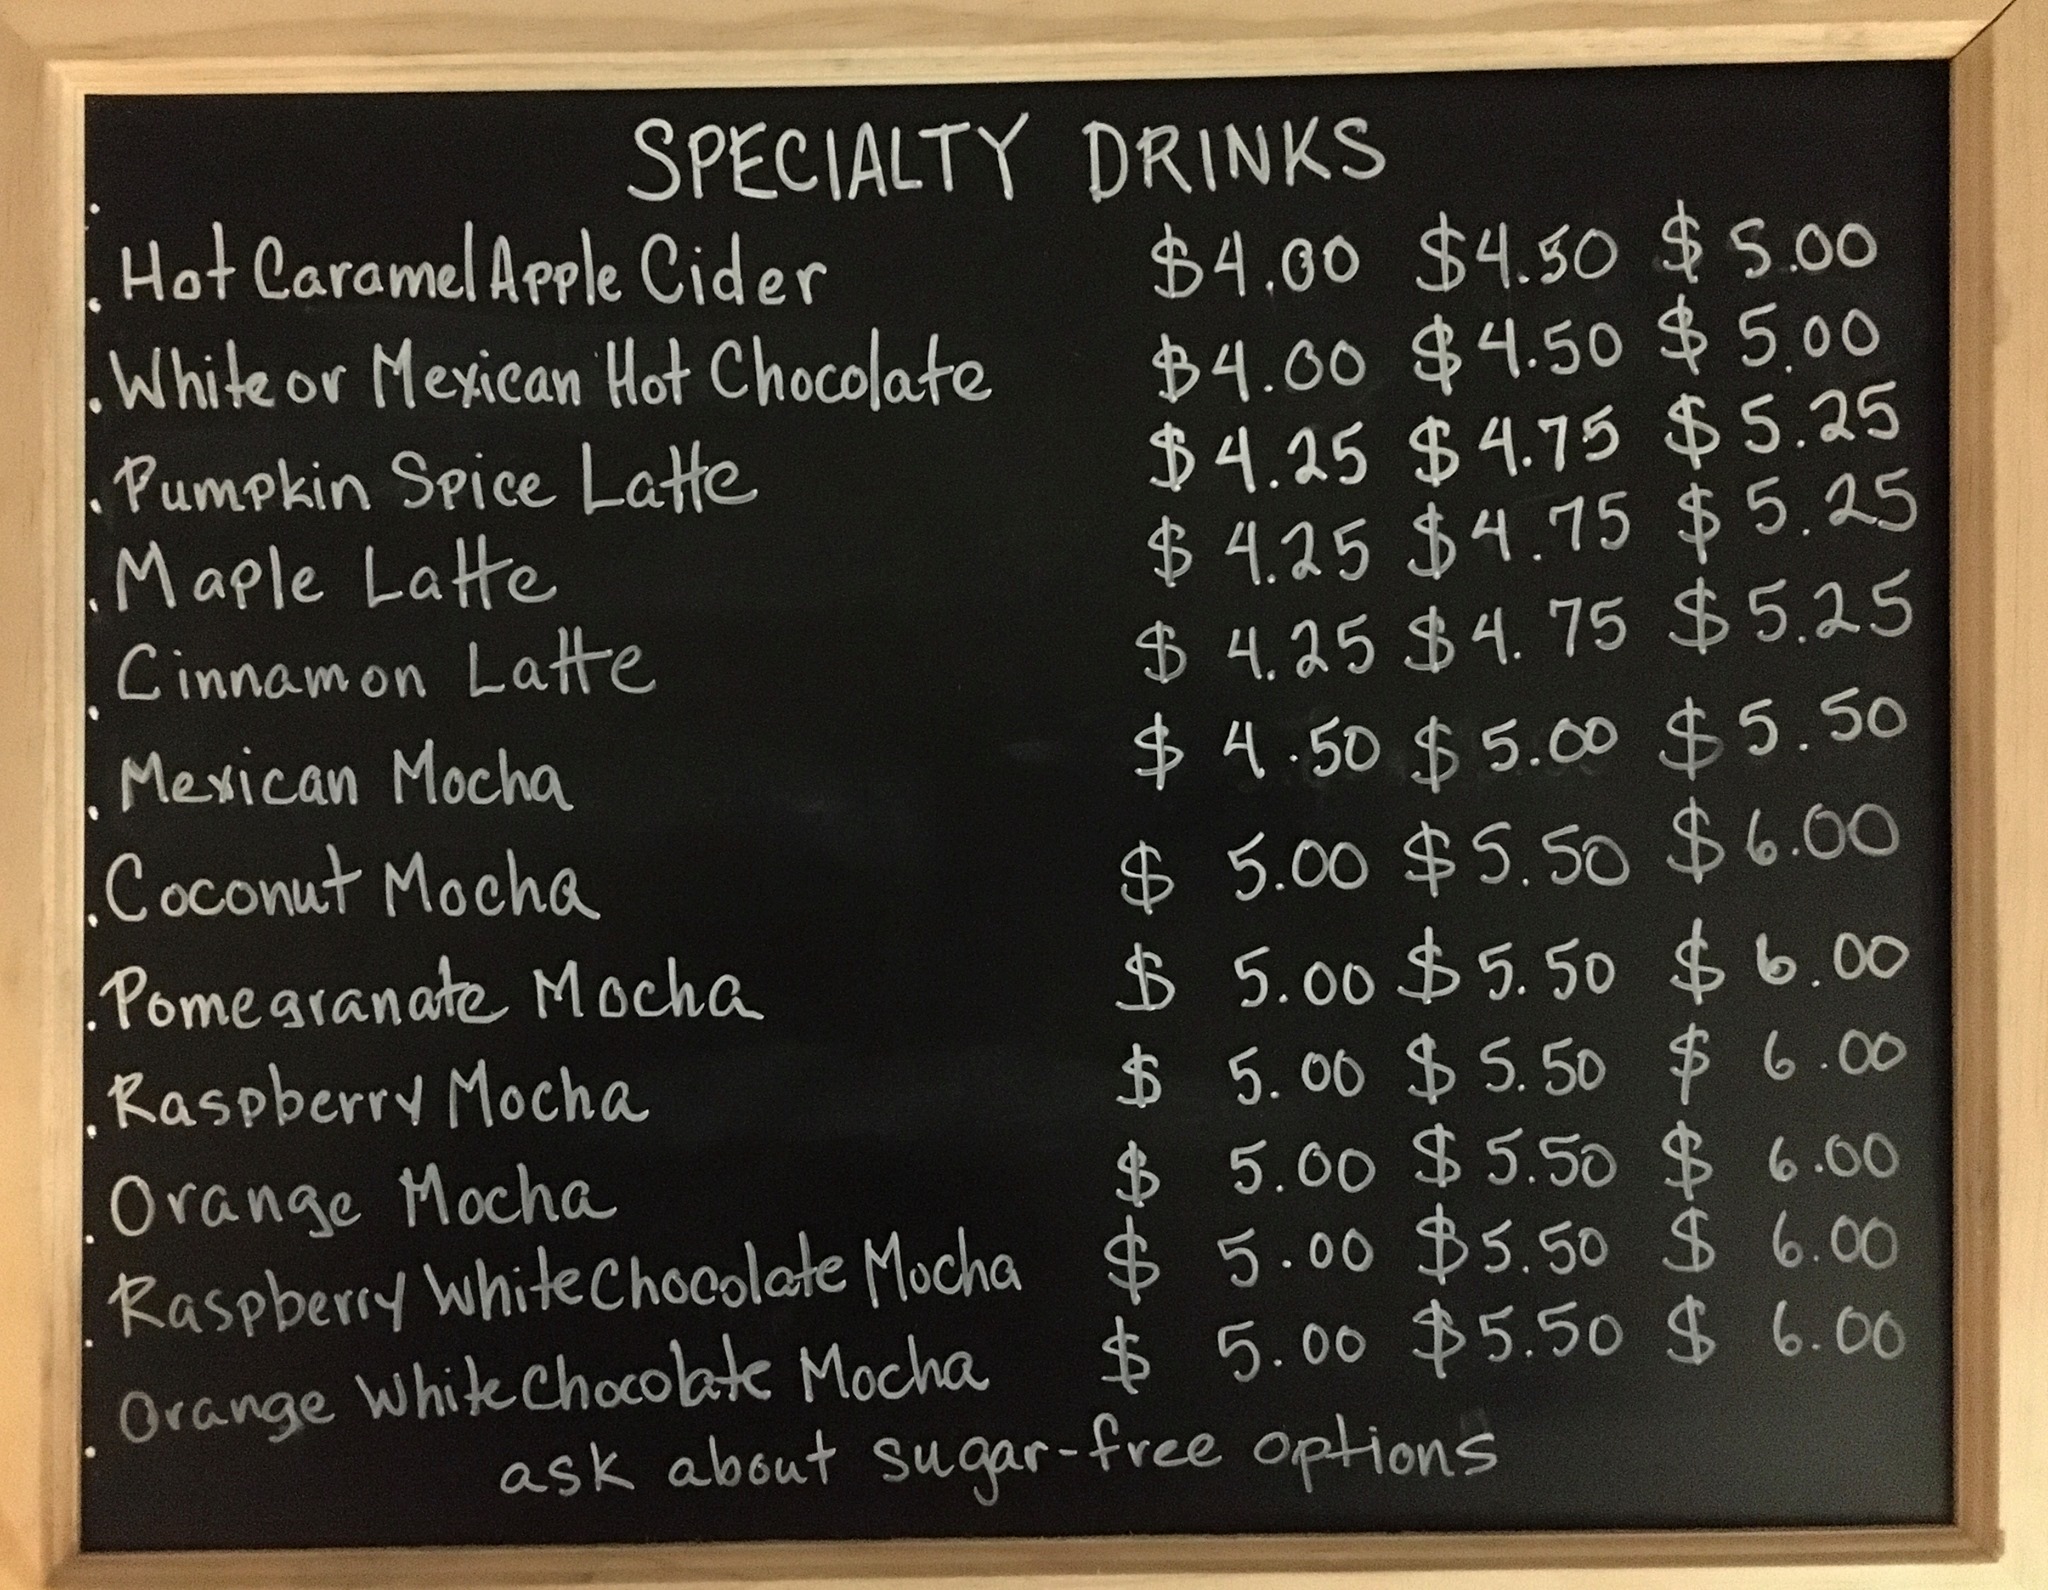 SPECIALTY DRINKS
. Hot Caramel Apple Cider $4.00 $4.50 $5.00
. White or Mexican Hot Chocolate $4.00 $4.50 $5.00
. Pumpkin Spice Latte $4.25 $4.75 $5.25
. Maple Latte $4.25 $4.75 $5.25
. Cinnamon Latte $4.25 $4.75 $5.25
. Mexican Mocha $4.50 $5.00 $5.50
. Coconut Mocha $5.00 $5.50 $6.00
. Pomegranate Mocha $5.00 $5.50 $6.00
. Raspberry Mocha $5.00 $5.50 $6.00
. Orange Mocha $5.00 $5.50 $6.00
. Raspberry White Chocolate Mocha $5.00 $5.50 $6.00
. Orange White Chocolate Mocha $5.00 $5.50 $6.00
ask about sugar-free options